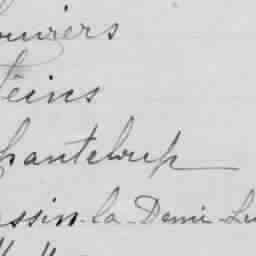 ouziers
eins
hanteloup
assin-la-Demi-Lu